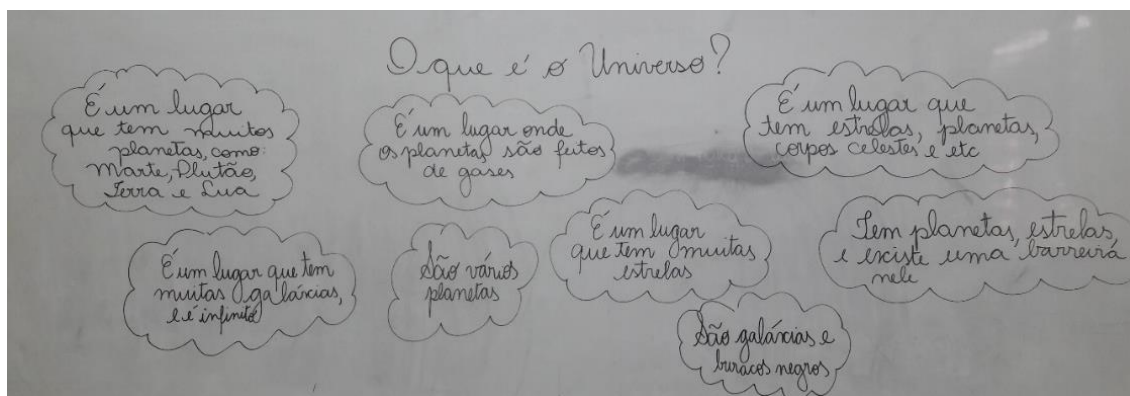 O que é o Universo?
É um lugar
que tem muitos
planetas, como:
Marte, Plutão,
Terra e Lua
É um lugar onde
os planetas são feitos
de gases
É um lugar que
tem estrelas, planetas,
corpos celestes e etc
É um lugar que tem
muitas galáxias,
e é infinito
São vários
planetas
É um lugar
que tem muitas
estrelas
Tem planetas, estrelas,
e existe uma barreira
nele
São galáxias e
buracos negros